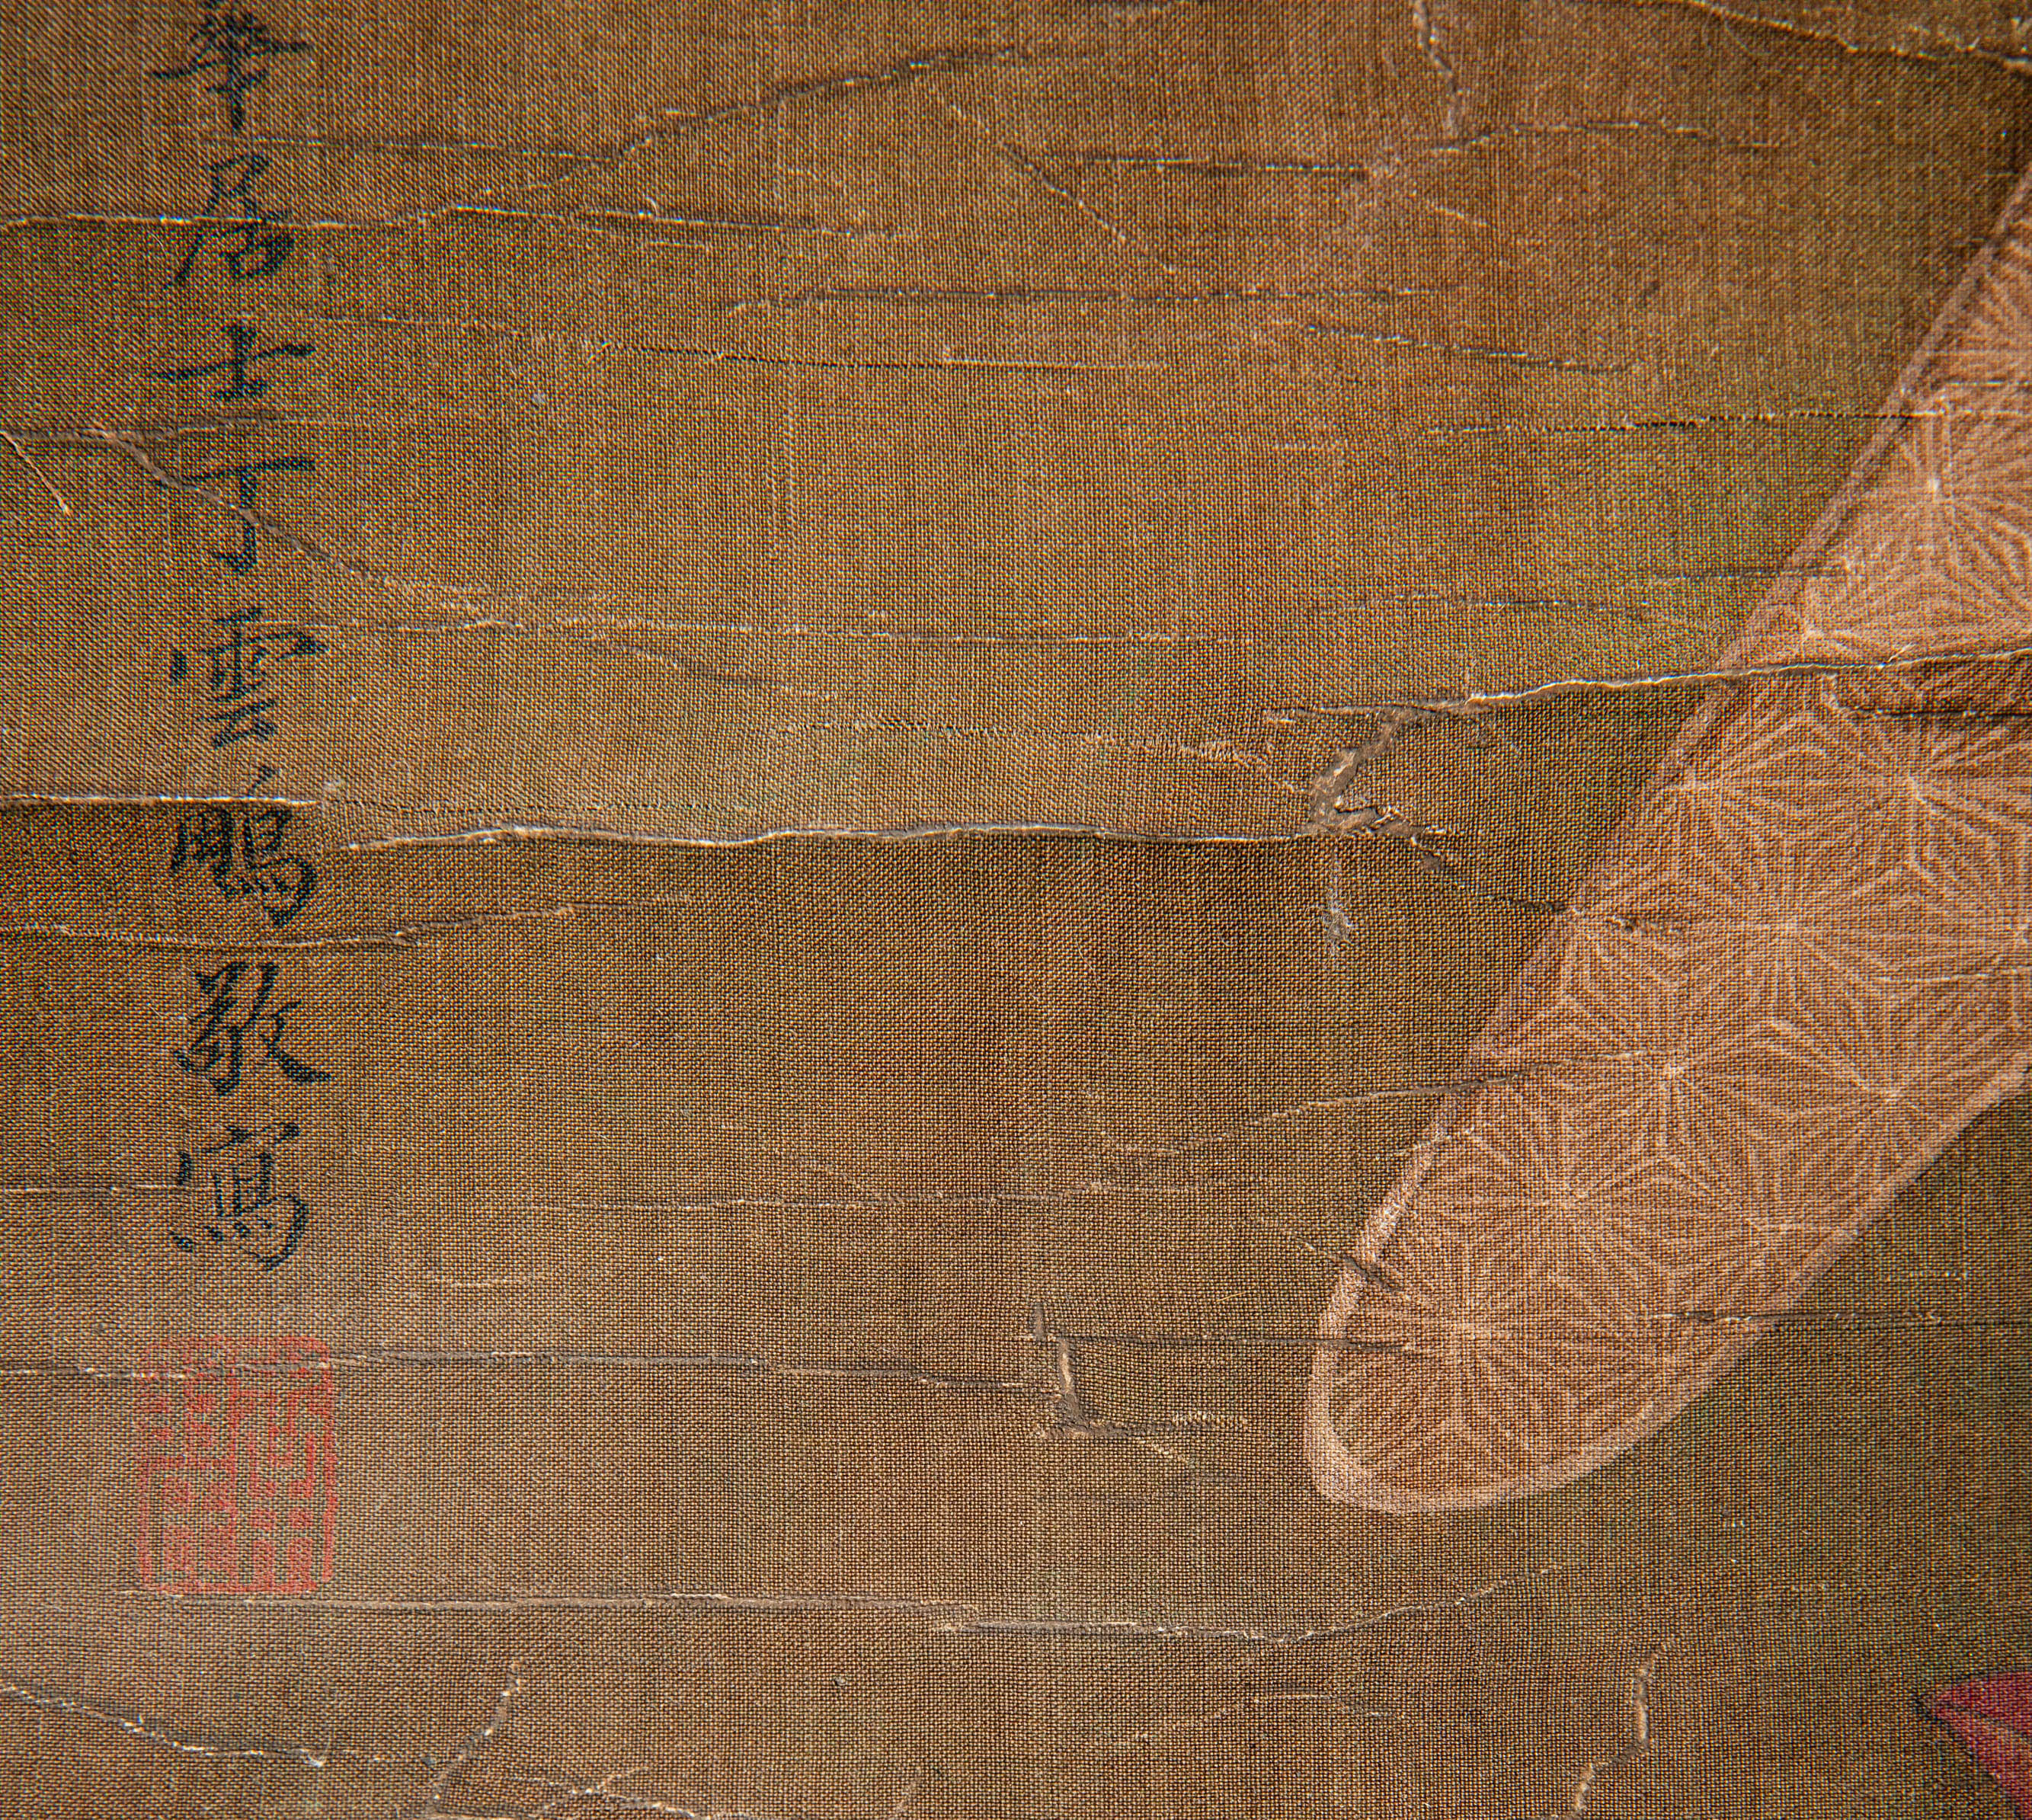 華居士丁雲鵬敬寫